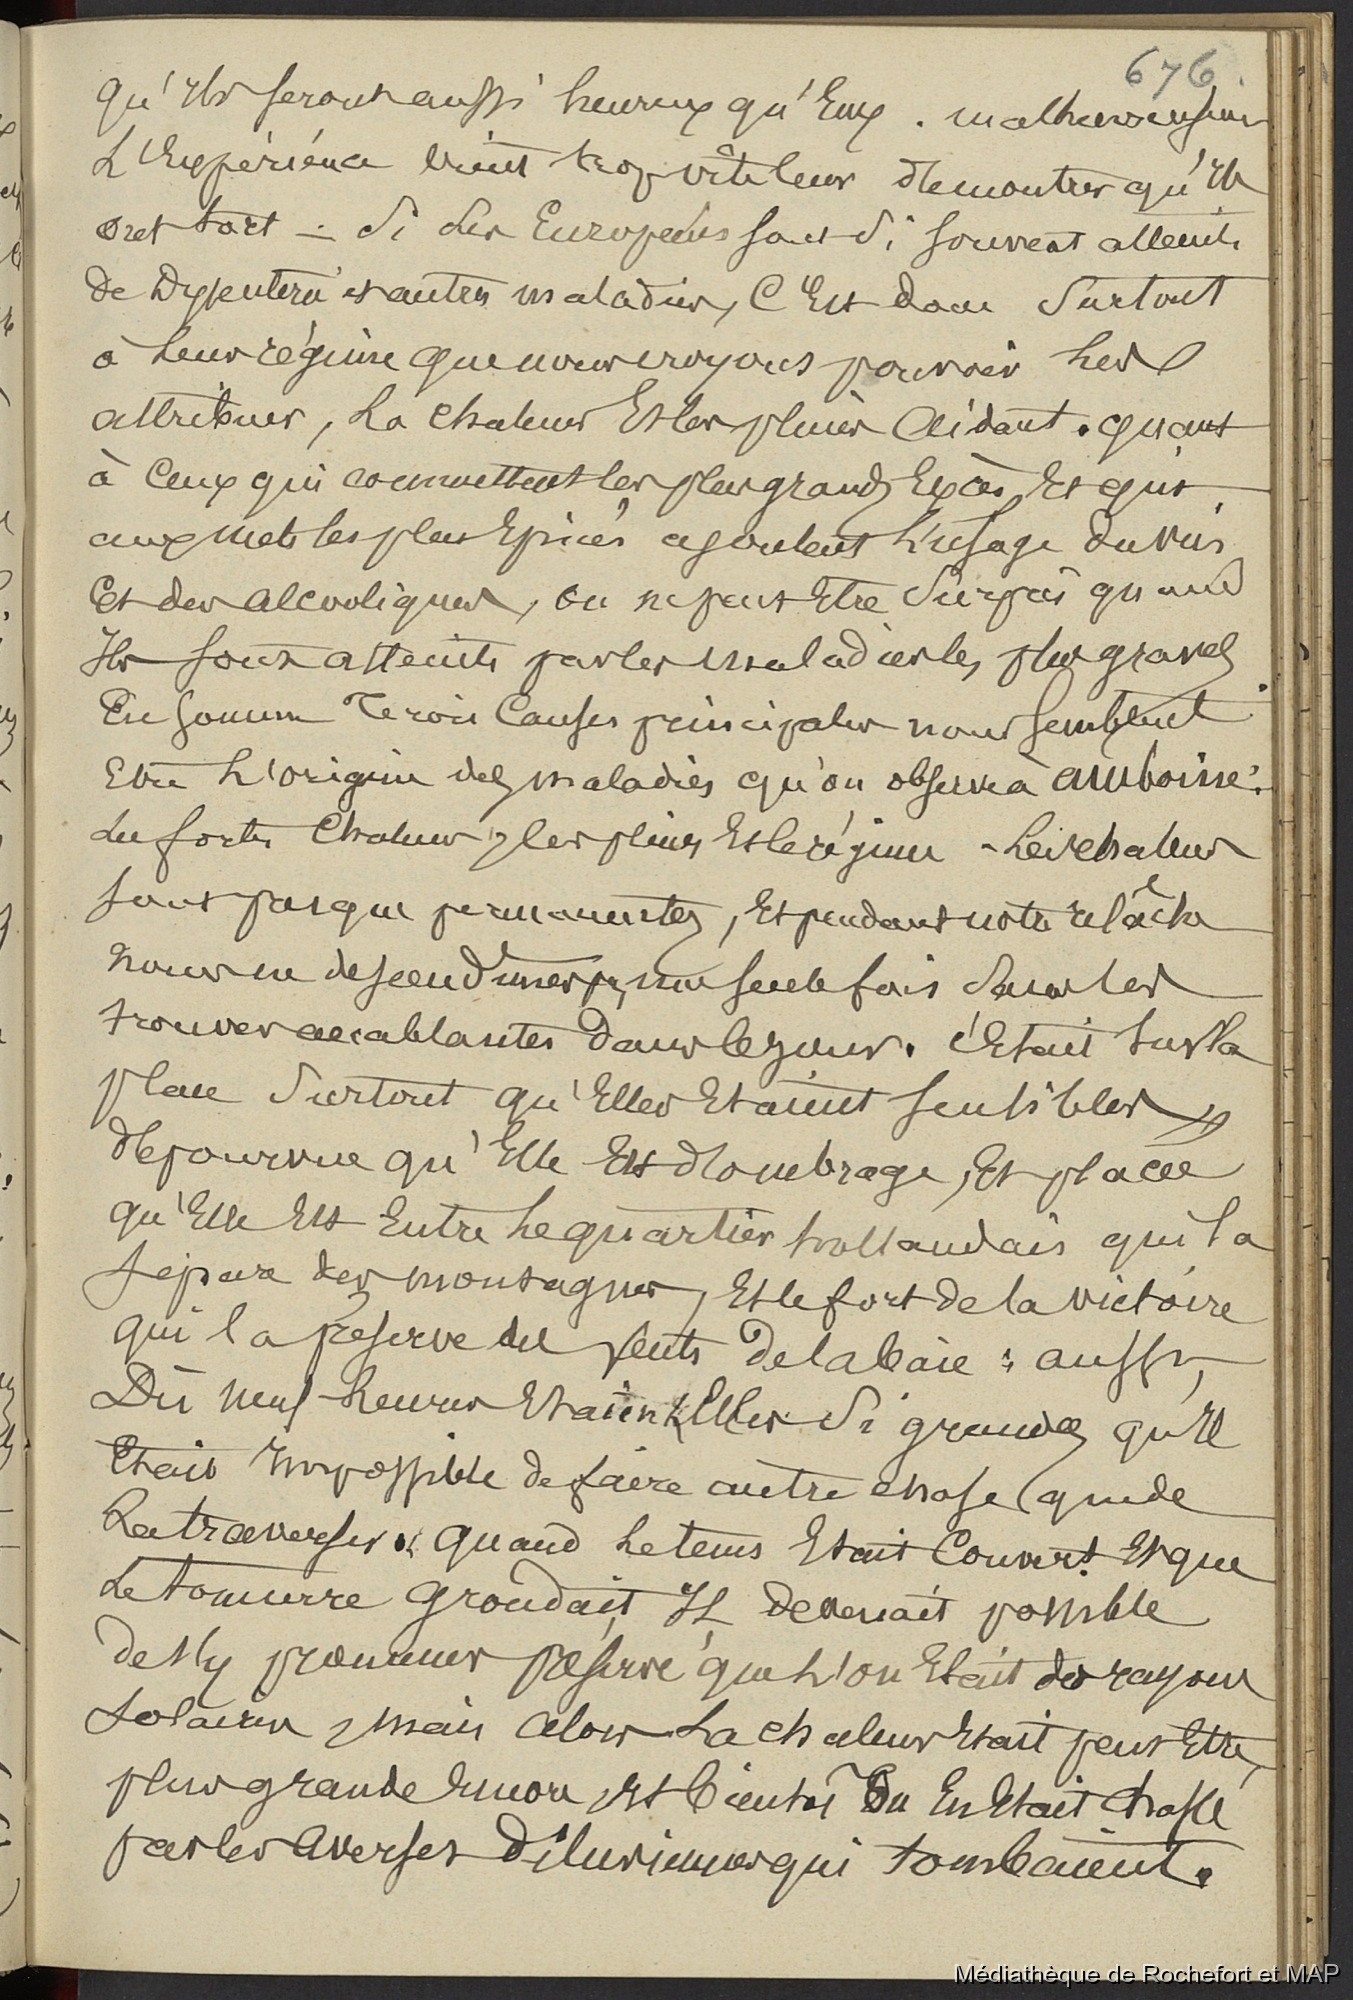 676.
qu'ils seront aussi heureux qu'Eux. malheureusem
L'Expérience vient trop vite leur demontrer qu'ils
ont tort – Si des Européens sont Si souvent atteints
de Dyssenterie et autres maladies, C'Est donc Surtout
à leur régime que nous croyons pouvoir les
attribuer, La Chaleur Et les pluies Aidant. quant
à Ceux qui commettent les plus grands Excès, Et qui
aux mets les plus Epicés ajoutent l'usage du vin
Et des alcooliques, on ne peut Etre Surpris quand
Ils sont atteints par les maladies les plus graves
En Somme Trois Causes principales nous semblent
Etre L'origine des maladies qu'on observe à amboine:
Les fortes Chaleurs, les pluies Et le régime - Les chaleurs
sont presque permanentes, Et pendant notre relâche
nous ne descendimes pas une seule fois Sans les
trouver accablantes Dans le jour. c'Etait sur la
place Surtout qu'Elles Etaient sensibles
dépourvue qu'Elle Est d'ombrage, Et placée
qu'Elle Est Entre Le quartier hollandais qui la
separe des montagnes, Et le fort de la victoire
qui la préserve des vents De la baie: aussi,
Dès neuf heures Etaient Elles Si grandes qu'Il
Etait Impossible de faire autre chose que de
La traverser. quand Le tems Etait Couvert Et que
Le tonnerre Grondait, Il devenait possible
de s'y promener préservé que L'on Etait des rayons
Solaires, mais alors La chaleur Etait peut Etre,
plus grande Encore, Et bientôt On En Etait chassé
par les Averses Diluviennes qui tombaient.
Médiathèque de Rochefort et MAP